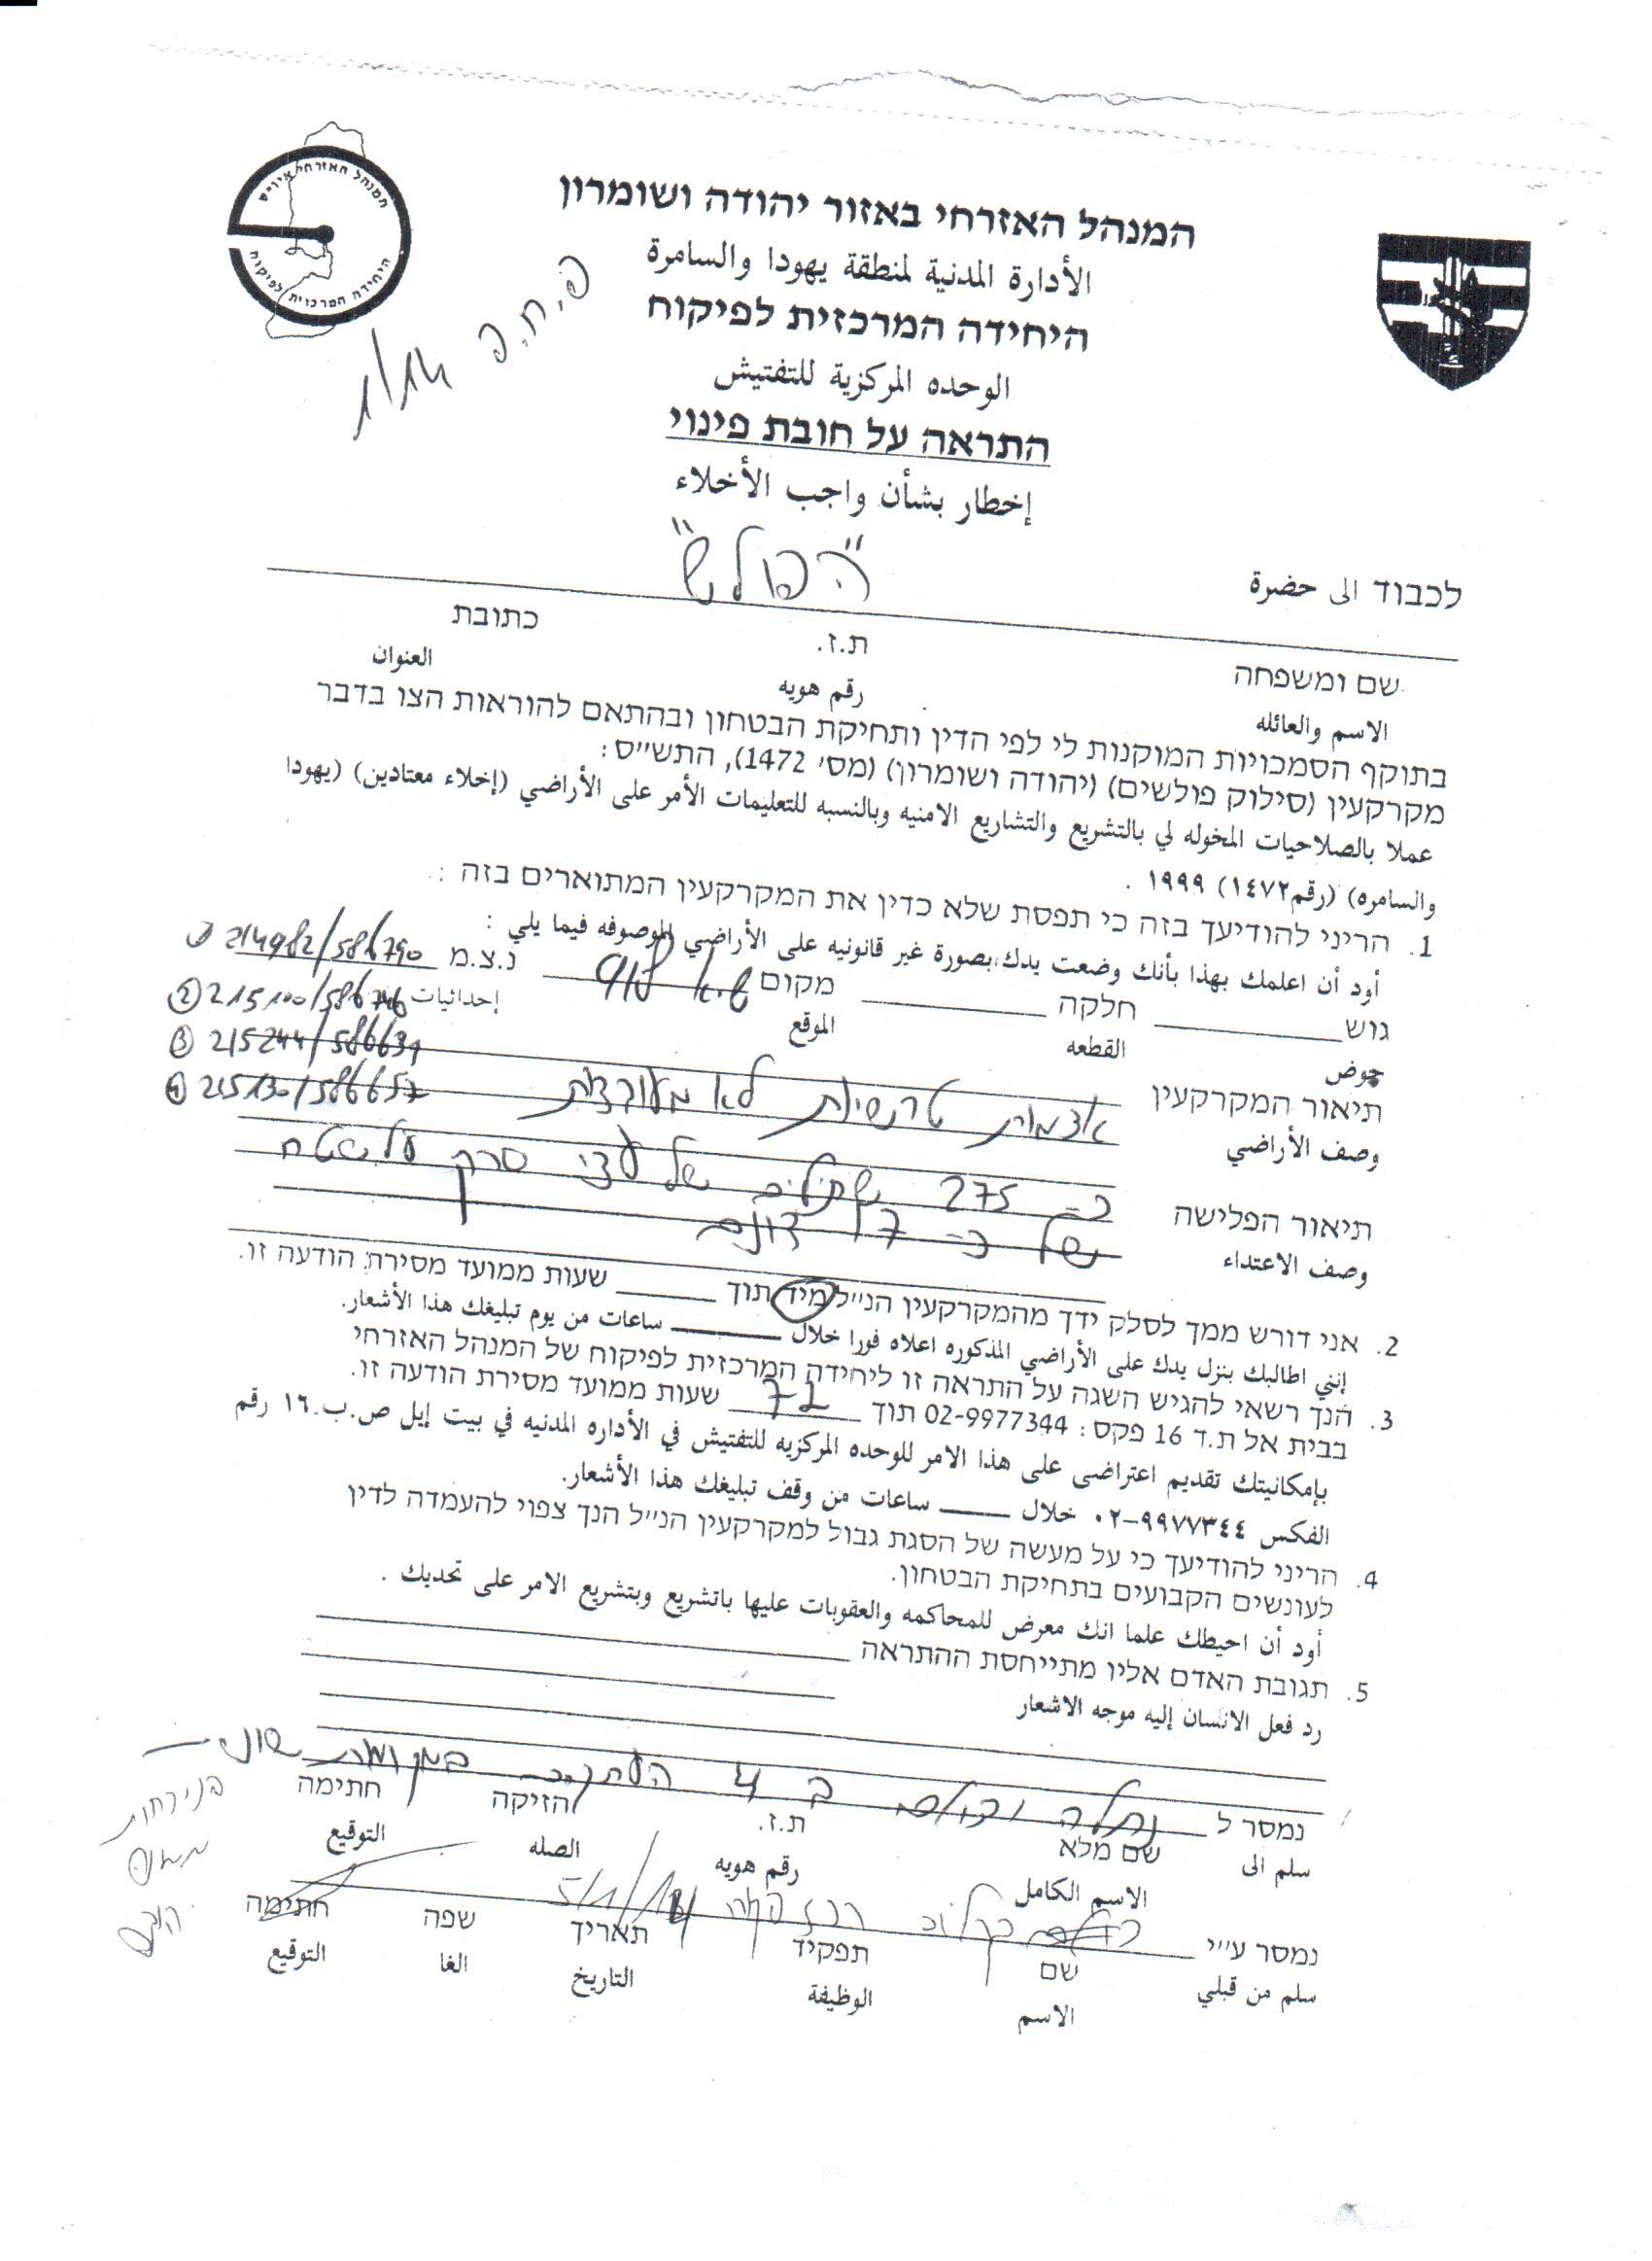 המנהל האזרחי באזור יהודה ושומרון
الأدارة المدنية لمنطقة يهودا والسامرة
היחידה המרכזית לפיקוח
الوحده المركزية للتفتيش
התראה על חובת פינוי
إخطار بشأن واجب الأخلاء
"הפולש"
לכבוד الى حضرة
שם ומשפחה ת.ז. כתובת
الاسم والعائله رقم هويه العنوان
בתוקף הסמכויות המוקנות לי לפי הדין ותחיקת הבטחון ובהתאם להוראות הצו בדבר
מקרקעין (סילוק פולשים) (יהודה ושומרון) (מס' 1472), התשי"ס:
عملا بالصلاحيات المخوله لي بالتشريع والتشاريع الامنيه وبالنسبه للتعليمات الأمر على الأراضي (إخلاء معتادين) (يهودا
والسامره) (رقم ١٤٧٢) ١٩٩٩ .
1. הריני להודיעך בזה כי תפסת שלא כדין את המקרקעין המתוארים בזה :
أود أن اعلمك بهذا بأنك وضعت يدك بصورة غير قانونيه على الأراضي الموصوفه فيما يلي :
גוש חלקה מקום נ.צ.מ 214982/586790
حوض القطعه الموقع إحداثيات ② 215100/586746
③ 215244/586639
④ 215130/586657
תיאור המקרקעין אדמות טרשיות לא מעובדות
وصف الأراضي
תיאור הפלישה כ- 275 שתילים של עצי סרק על שטח
وصف الاعتداء של כ- 17 דונם
2. אני דורש ממך לסלק ידך מהמקרקעין הנ"ל מיד תוך שעות ממועד מסירת הודעה זו.
إنني اطالبك بنزل يدك على الأراضي المذكوره اعلاه فورا خلال ساعات من يوم تبليغك هذا الأشعار.
3. הנך רשאי להגיש השגה על התראה זו ליחידה המרכזית לפיקוח של המנהל האזרחי
בבית אל ת.ד 16 פקס : 02-9977344 תוך 72 שעות ממועד מסירת הודעה זו.
بإمكانيتك تقديم اعتراضى على هذا الامر للوحده المركزيه للتفتيش في الأداره المدنيه في بيت إيل ص.ب.١٦ رقم
الفكس ٩٩٧٧٣٤٤-٠٢ خلال ساعات من وقف تبليغك هذا الأشعار.
4. הריני להודיעך כי על מעשה של הסגת גבול למקרקעין הנ"ל הנך צפוי להעמדה לדין
לעונשים הקבועים בתחיקת הבטחון.
أود أن احيطك علما انك معرض للمحاكمه والعقوبات عليها باتشريع وبتشريع الامر على تحديك .
5. תגובת האדם אליו מתייחסת ההתראה
رد فعل الانسان إليه موجه الاشعار
נמסר ל ב 4 העתקים במקומות שונים
سلم الى שם מלא ת.ז. הזיקה חתימה
الاسم الكامل رقم هويه الصله التوقيع
נמסר ע"י
سلم من قبلي שם תפקיד תאריך שפה חתימה
الاسم الوظيفة التاريخ الغا التوقيع